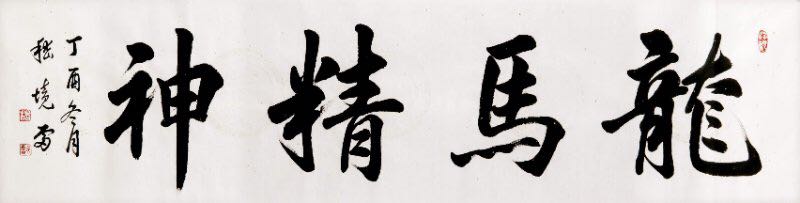 龍馬精神
丁酉冬月
嵇境雷